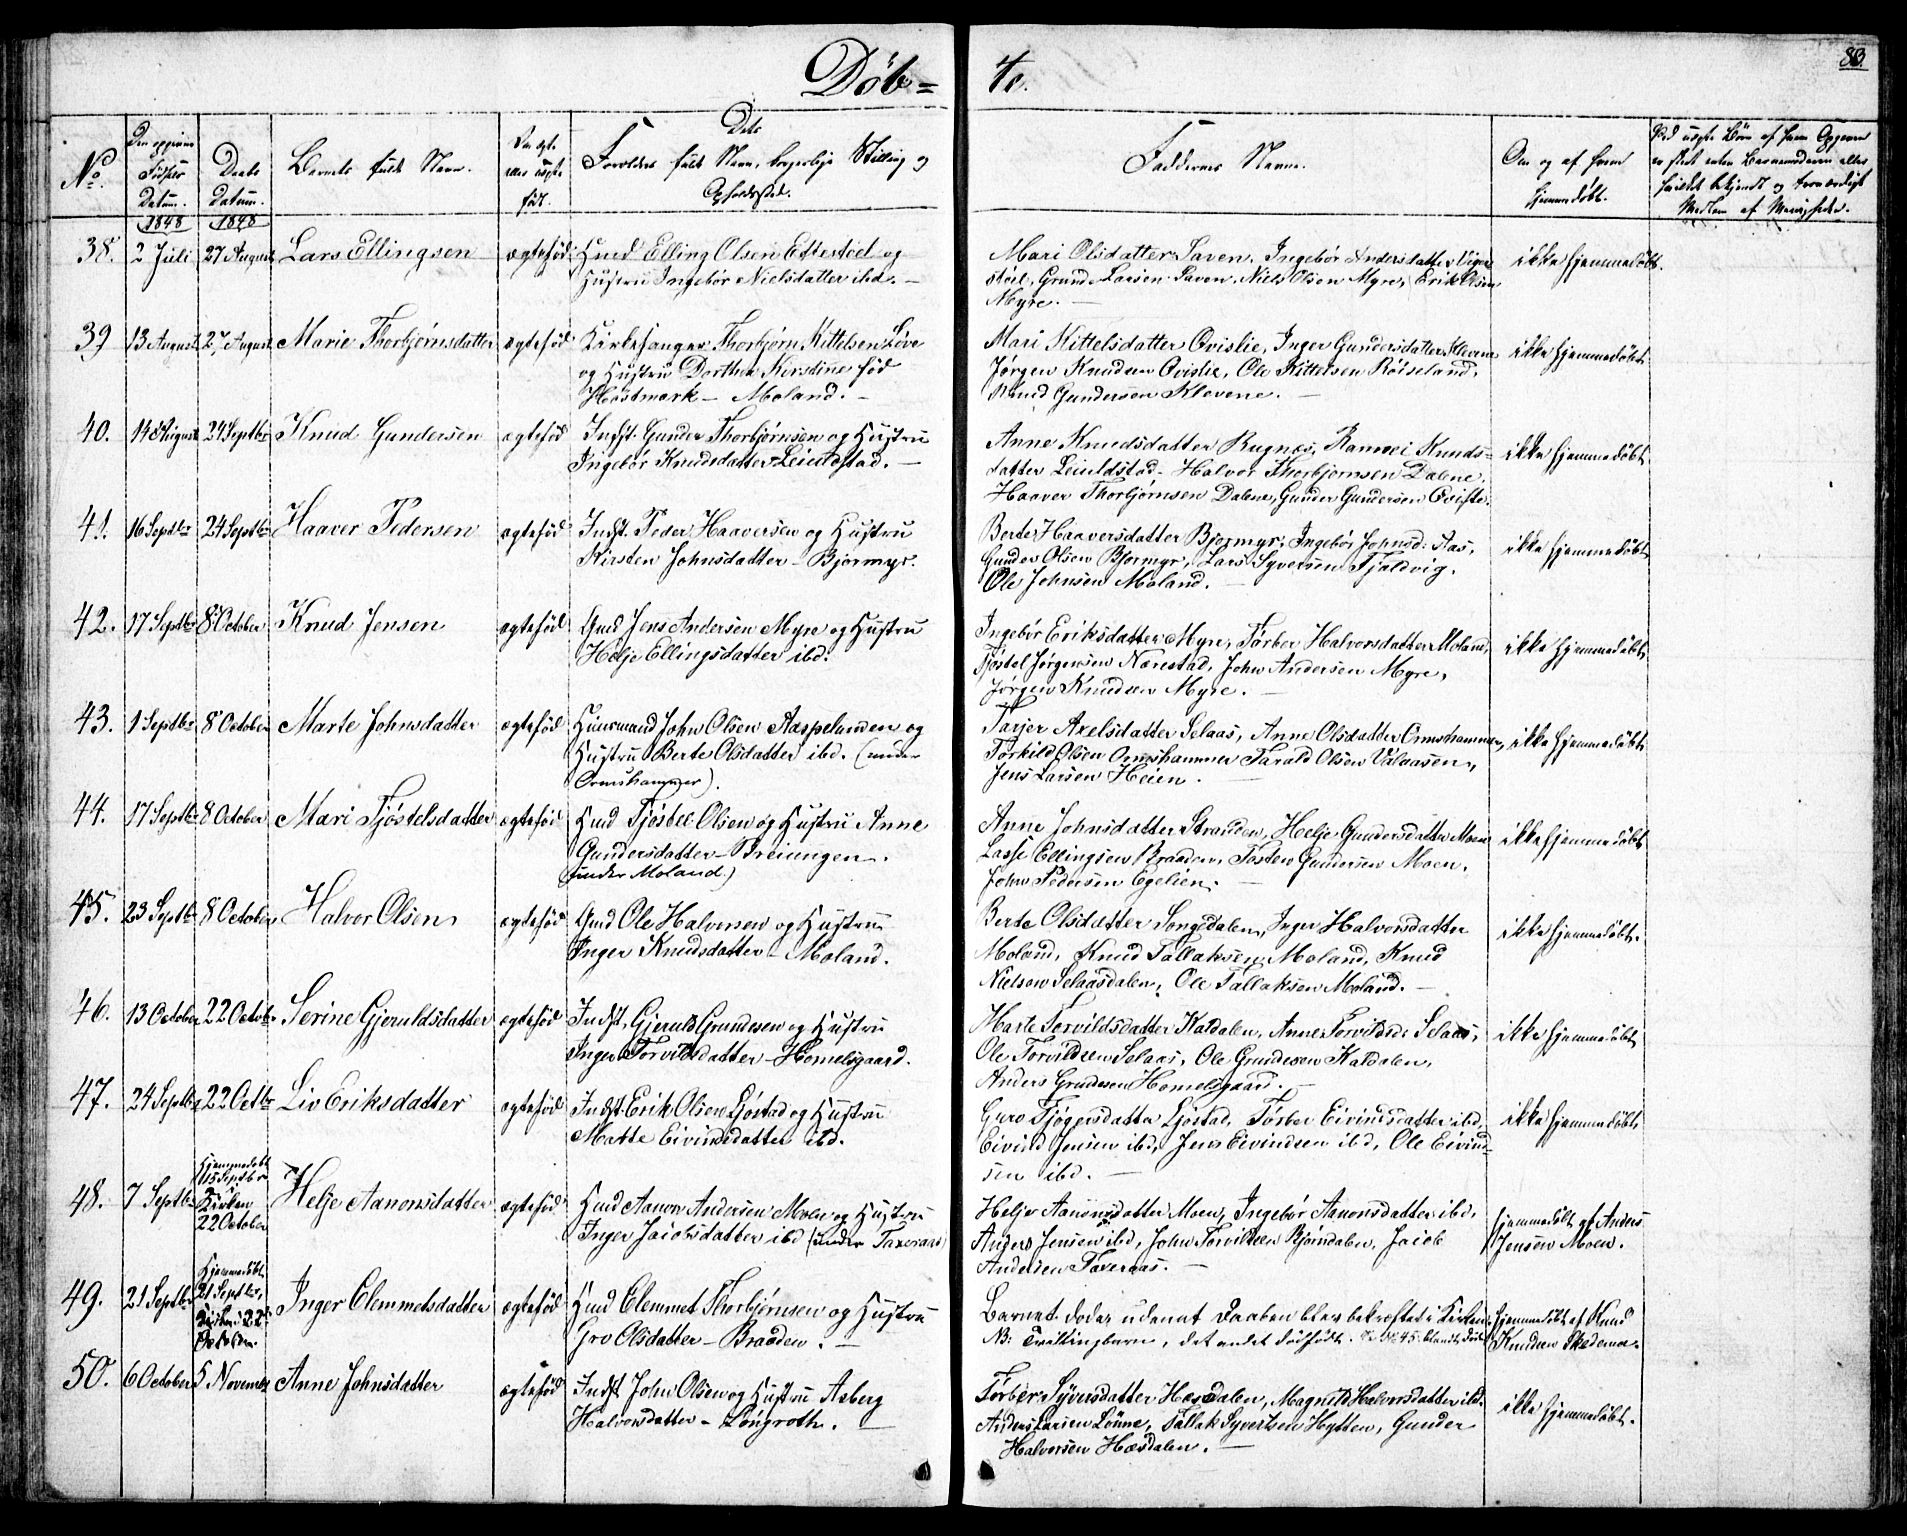 Døb= te.
83.
No.
Den opgivne Fødsels Datum.
Daabs Datum.
Barnets fulde Navn.
Om ægte eller uægte født.
Forældres fulde Navn, borgerlige Stilling og
Dets
Opholdssted.
Faddernes Navne.
Om og af hvem hjemmedøbt.
Ved uægte Børn af hvem Opgaven er skeet enten Barnemoderen eller
Medlem af Menigheden.
1848 1848
38. 2 Juli 27 August Lars Ellingsen ægtefød Gmd Elling Olsen Ettestøel og
Hustru Ingebør Nielsdatter ibd. —
Mari Olsdatter Saven, Ingebør Andersdatter Viger-
støel, Grunde Larsen Saven, Niels Olsen Myre, Erik Olsen
Myre. —
ikke hjemmedøbt.
39 13 August 27 August Marie Thorbjørnsdatter ægtefød Kirkesanger Thorbjørn Kittelsen Løve
og Hustru Dorthea Kirstine fød
Høstmark — Moland. —
Mari Kittelsdatter Qvislie, Inger Gundersdatter Klevene
Jørgen Knudsen Qvislie, Ole Kittelsen Røiseland,
Knud Gundersen Klevene. —
ikke hjemmedøbt
40. 14 August 24 Septbr Knud Gundersen ægtefød Indst. Gunder Thorbjørnsen og Hustru
Ingebør Knudsdatter Leiuldstad. —
Anne Knudsdatter Rugnæs, Ramvei Knuds-
datter Leiuldstad - Halvor Thorbjørnsen Dalene,
Haaver Thorbjørnsen Dalene, Gunder Gundersen Qvifte.
ikke hjemmedøbt
41. 16 Septbr 24 Septbr Haaver Pedersen ægtefød Indst. Peder Haaversen og Hustru
Kirsten Johnsdatter - Bjormyr.
Berte Haaversdatter Bjormyr, Ingebør Johnsd: Aas,
Gunder Olsen Bjormyr, Lars Syversen Fjaldvig.
Ole Johnsen Moland. —
ikke hjemmedøbt
42. 17 Septbr 8 October Knud Jensen ægtefød Gmd Jens Andersen Myre og Hustru
Helje Ellingsdatter ibd.
Ingebør Eriksdatter Myre, Tørber Halvorsdatter Moland,
Tjøstel Jørgensen Narestad, John Andersen Myre,
Jørgen Knudsen Myre. —
ikke hjemmedøbt
43. 1 Septbr 8 October Marte Johnsdatter ægtefød Huusmand John Olsen Aaspelunden og
Hustru Berte Olsdatter ibd. (under
Ormshammer).
Tarjer Axelsdatter Selaas, Anne Olsdatter Ormshammer,
Torkild Olsen Ormshammer Tarald Olsen Valaasen,
Jens Larsen Heien. —
ikke hjemmedøbt
44. 17 Septbr 8 October Mari Tjøstelsdatter ægtefød Hmd Tjøstel Olsen og Hustru Anne
Gundersdatter - Breiungen.
(under Moland.)
Anne Johnsdatter Stranden, Helje Gundersdatter Moen
Lasse Ellingsen Braaden, Tosten Gundersen Moen,
John Pedersen Egelien. —
ikke hjemmedøbt
45. 23 Septbr 8 October Halvor Olsen ægtefød Gmd Ole Halvorsen og Hustru
Inger Knudsdatter - Moland.
Berte Olsdatter Songedalen, Inger Halvorsdatter
Moland, Knud Tallaksen Moland, Knud
Nielsen Selaasdalen, Ole Tallaksen Moland. —
ikke hjemmedøbt.
46. 13 October 22 Octobr Serine Gjeruldsdatter ægtefød Indst, Gjeruld Grundesen og Hustru
Inger Torvildsdatter - Homelsgaard.
Marte Torvildsdatter Kaldalen, Anne Torvildsd: Selaas,
Ole Torvildsen Selaas, Ole Grundesen Kaldalen,
Anders Grundesen Homelsgaard. —
ikke hjemmedøbt
47. 24 Septbr 22 Octbr Liv Eriksdatter ægtefød Indst. Erik Olsen Ljøstad og Hustru
Matte Eivindsdatter ibd.
Guro Tjøgersdatter Ljøstad, Tørber Eivindsdatter ibd,
Eivind Jensen ibd, Jens Eivindsen ibd, Ole Eivind-
sen ibd. —
ikke hjemmedøbt
48. 7 Septbr Hjemmedøbt 15 Septbr i Kirken 22 October Helje Aanonsdatter ægtefød Hmd Aanon Andersen Moen og Hustru
Inger Jacobsdatter ibd (under Taxeraas)
Helje Aanonsdatter Moen, Ingebør Aanonsdatter ibd,
Anders Jensen ibd, John Torvildsen Bjørndalen, Jacob
Andersen Taxeraas. —
hjemmedøbt af Anders
Jensen Moen.
49. 21 Septbr Hjemmedøbt 21 Septbr, Kirken 22 October. Inger Clemmetsdatter ægtefød Hmd Clemmet Thorbjørnsen og Hustru
Gro Olsdatter - Braaden. —
Barnet døde, udenat Daaben blev bekræftet i Kirken.
NB: Tvillingbarn, det andet dødfødt.
hjemmedøbt af Knud
Knudsen Skedemo.
50. 6 October 5 November Anne Johnsdatter ægtefød Indst John Olsen og Hustru Asberg
Halvorsdatter - Longroth. —
Tørber Syversdatter Hæsdalen, Magnild Halvorsdatter ibd.
Anders Larsen Lønne, Tallak Syvertsen Hytten, Gunder
Halvorsen Hæsdalen. —
ikke hjemmedøbt.